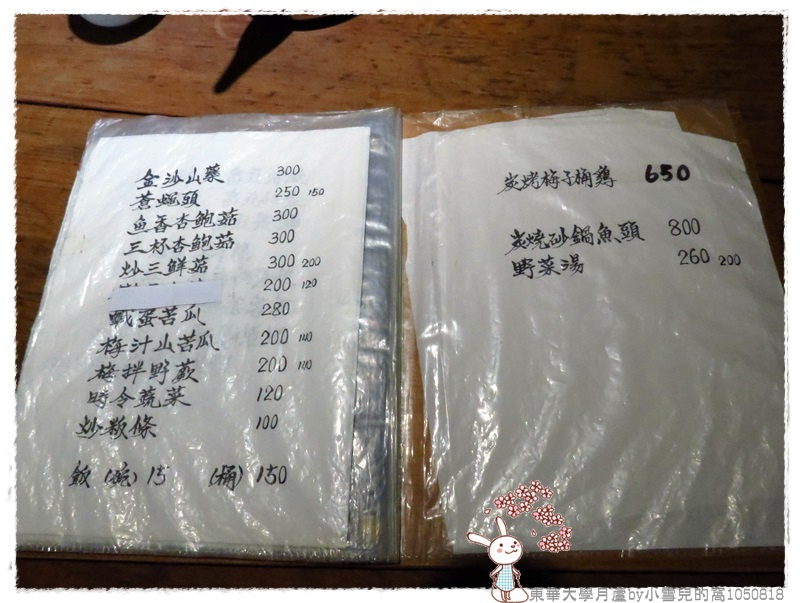 金沙山藥 300
蒼蠅頭 250 150
魚香杏鮑菇 300
三杯杏鮑菇 300
炒三鮮菇 300 200
200 120
鹹蛋苦瓜 280
梅汁山苦瓜 200 140
梅拌野蕨 200 140
時令蔬菜 120
炒粄條 100
飯(碗)15 (桶)150
炭烤梅子桶鷄 650
炭燒砂鍋魚頭 800
野菜湯 260 200
東華大學月廬by小雪兒的窩1050818